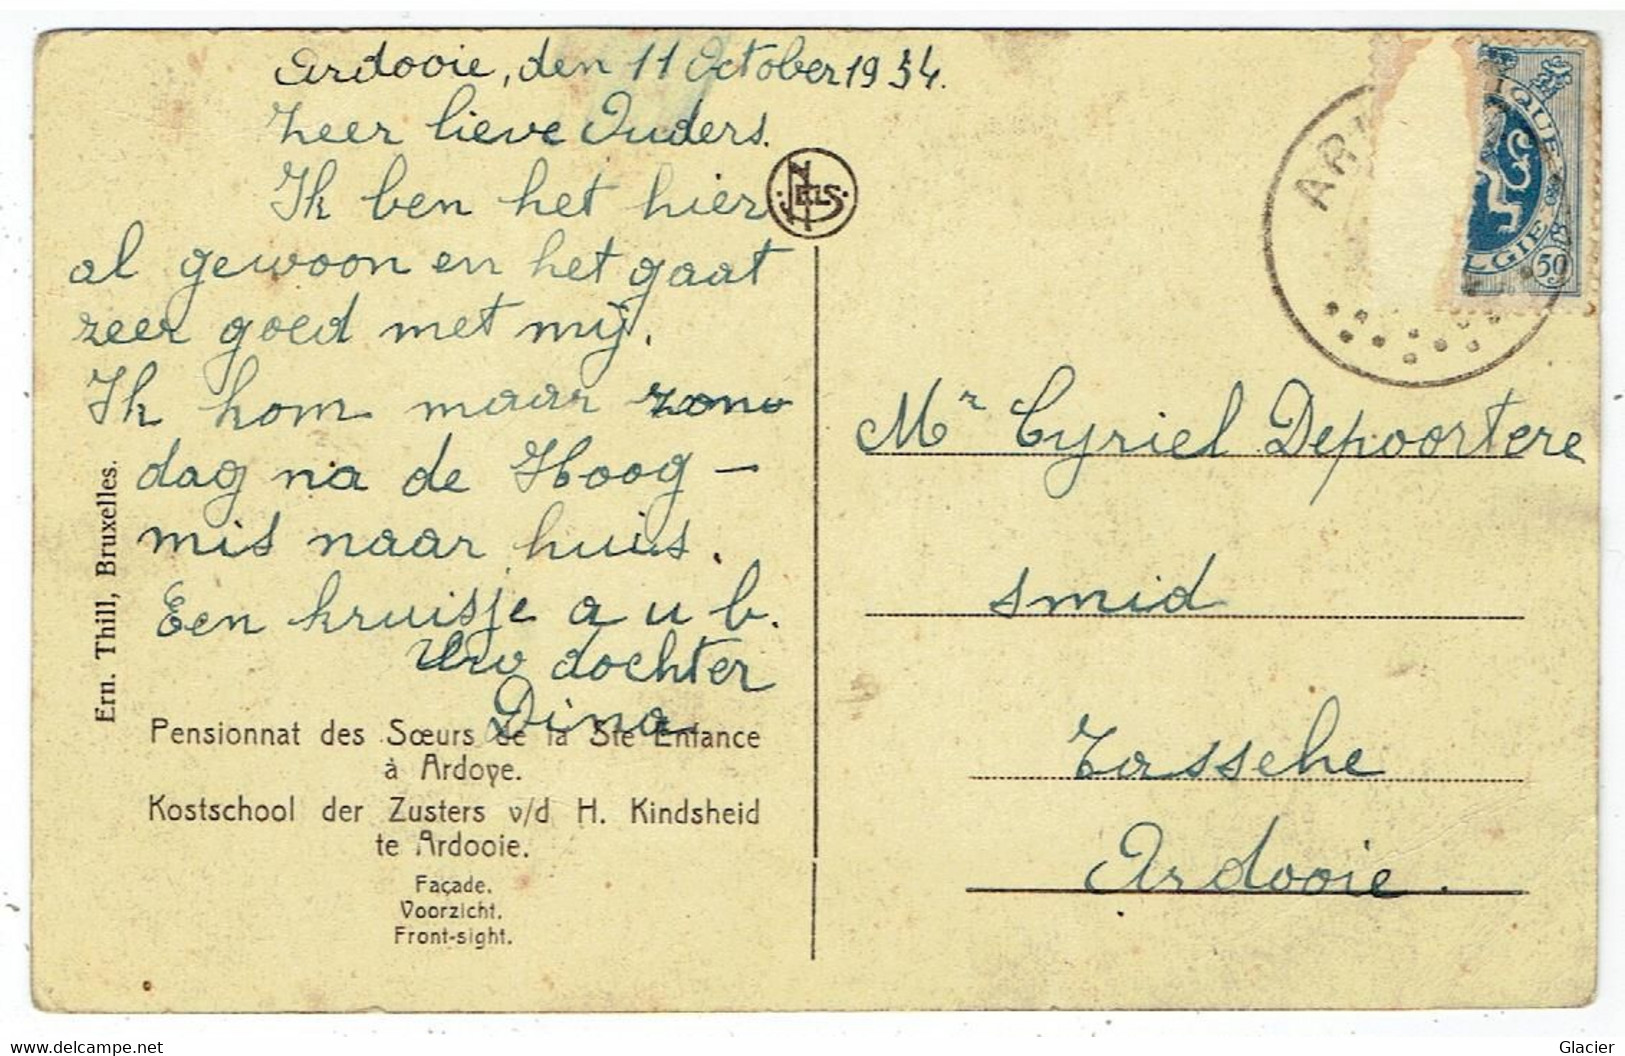 Ardooie, den 11 October 1934.
Zeer lieve Ouders.
Ik ben het hier
al gewoon en het gaat
zeer goed met mij.
Ik kom maar zon
dag na de Hoog-
mis naar huis.
Een kruisje a u b.
Uw dochter
Dina
NELS
Ern. Thill, Bruxelles.
Pensionnat des Sœurs de la Ste Enfance
à Ardoye.
Kostschool der Zusters v/d H. Kindsheid
te Ardooie.
Façade.
Voorzicht.
Front-sight.
AR
IQUE
LGIE
50
Mr Cyriel Depoortere
smid
Tassche
Ardooie.
www.delcampe.net
Glacier